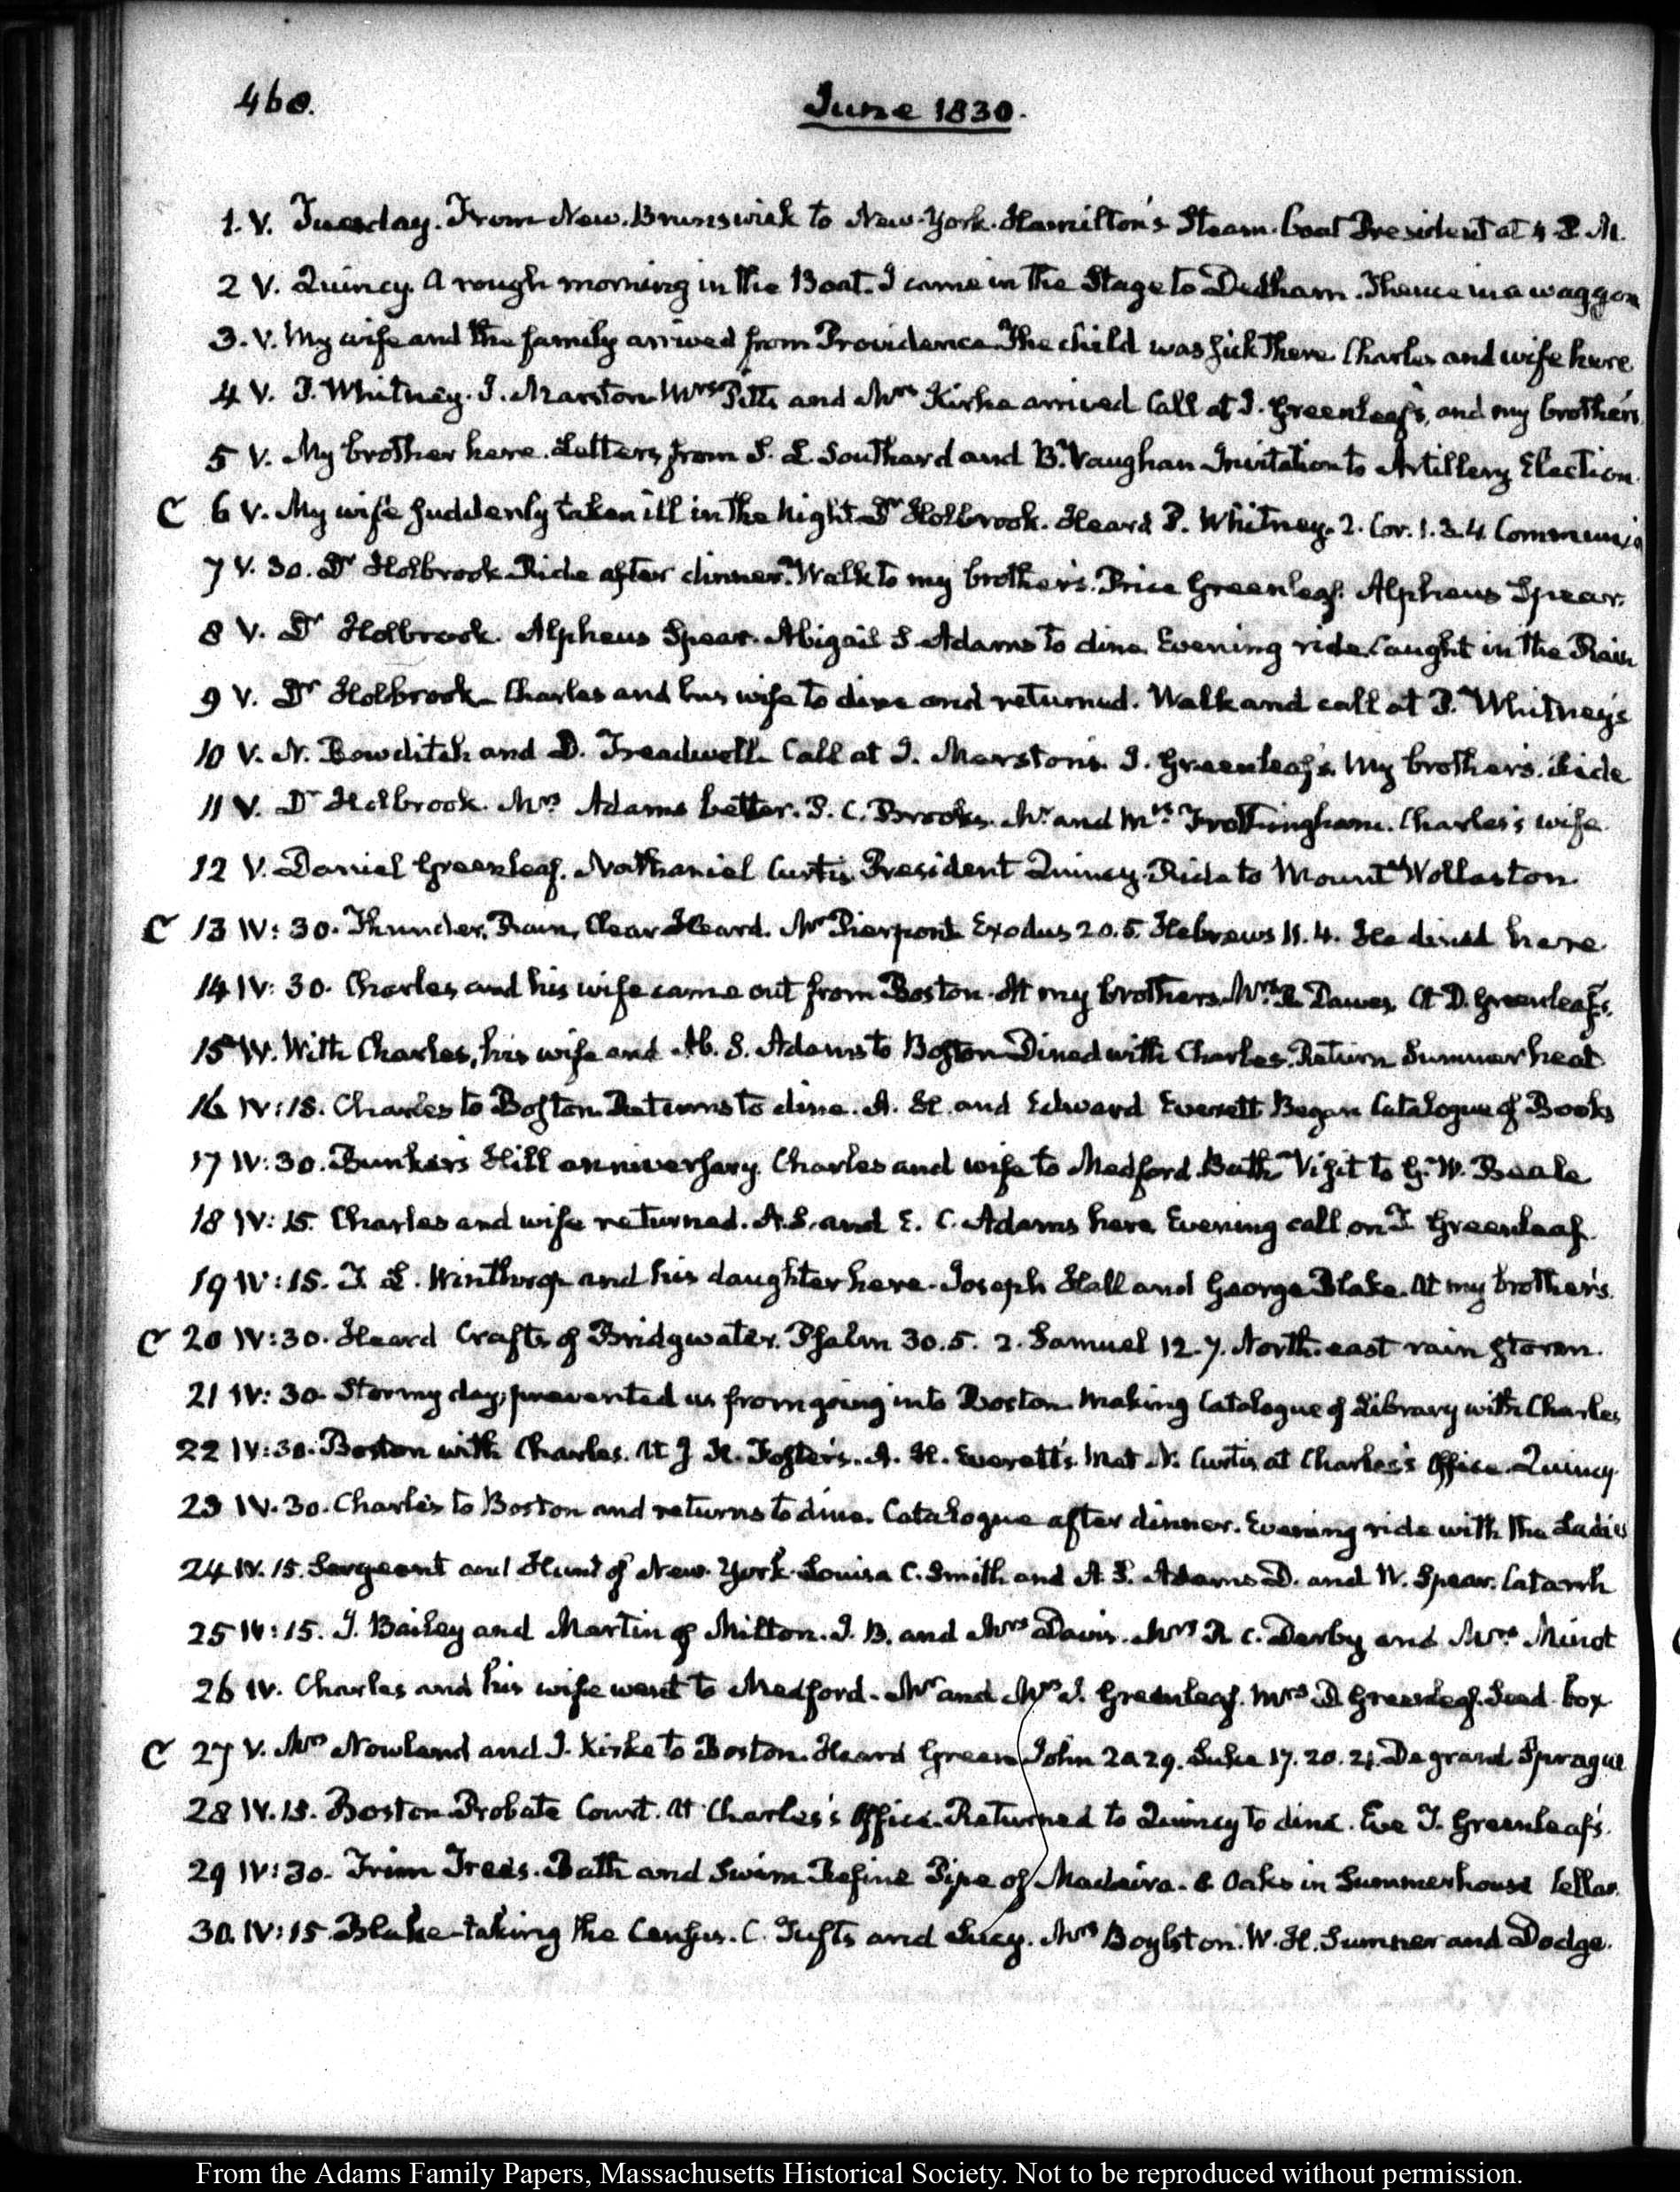 460.
June 1830.
1. V. Tuesday. From New-Brunswick to New-York. Hamilton's Steam-boat President at 4 P.M.
2 V. Quincy. A rough morning in the Boat. I came in the Stage to Dedham. Thence in a waggon
3. V. My wife and the family arrived from Providence. The child was sick there. Charles and wife here
4 V. P. Whitney. J. Marston. Mrs Pitts and Mrs Kirke arrived. Call at T. Greenleaf's, and my brother's
5 V. My brother here. Letters from S. L. Southard and B. Vaughan. Invitation to Artillery Election.
C 6 V. My wife suddenly taken ill in the Night. Dr Holbrook. Heard P. Whitney. 2. Cor. 1. 3.4. Communio
7 V. 30. Dr Holbrook. Ride after dinner. Walk to my brother's. Price Greenleaf. Alpheus Spear.
8 V. Dr Holbrook. Alpheus Spear. Abigail S. Adams to dine. Evening ride. Caught in the Rain
9 V. Dr Holbrook. Charles and his wife to dine and returned. Walk and call at P. Whitney's
10 V. N. Bowditch and D. Treadwell. Call at J. Marston's. T. Greenleaf's. My brother's. Ride
11 V. Dr Holbrook. Mrs Adams better. P. C. Brooks. Mr and Mrs Frothingham. Charles's wife.
12 V. Daniel Greenleaf. Nathaniel Curtis. President Quincy. Ride to Mount Wollaston.
C 13 IV: 30. Thunder, Rain, Clear. Heard. Mr Pierpont. Exodus 20.5. Hebrews 11. 4. He dined here.
14 IV: 30. Charles and his wife came out from Boston. At my brothers. Mrs R. Dawes. At D. Greenleaf's.
15 IV. With Charles, his wife and Ab. S. Adams to Boston. Dined with Charles. Return. Summer heat.
16 IV: 15. Charles to Boston. Returns to dine. A. H. and Edward Everett. Began Catalogue of Books
17 IV: 30. Bunker's Hill anniversary. Charles and wife to Medford. Bath. Visit to G. W. Beale
18 IV: 15. Charles and wife returned. A.S. and E. C. Adams here. Evening call on T Greenleaf.
19 IV: 15. T L. Winthrop and his daughter here. Joseph Hall and George Blake. At my brother's.
C 20 IV: 30. Heard Crafts of Bridgwater. Psalm 30.5. 2. Samuel 12.7. North-east rain storm.
21 IV: 30. Stormy day; prevented us from going into Boston. Making Catalogue of Library with Charles
22 IV: 30. Boston with Charles. At J H. Foster's. A. H. Everett's. Met N. Curtis at Charles's Office. Quincy.
23 IV. 30. Charles to Boston and returns to dine. Catalogue after dinner. Evening ride with the Ladies
24 IV. 15. Sergeant and Hunt of New-York. Louisa C. Smith and A. S. Adams. D. and W. Spear. Catarrh
25 IV: 15. J. Bailey and Martin of Milton. J. B. and Mrs Davis. Mrs R C. Derby and Mrs Minot
26 IV. Charles and his wife went to Medford. Mr and Mrs T. Greenleaf. Mrs D Greenleaf. Seed-box
C 27 V. Mrs Nowland and J. Kirke to Boston. Heard Green John 20.29. Luke 17. 20. 21. Degrand. Sprague
28 IV. 15. Boston. Probate Court. At Charles's Office. Returned to Quincy to dine. Eve T. Greenleaf's.
29 IV: 30. Trim Trees. Bath and Swim. Refine Pipe of Madeira. & Oaks in Summerhouse Cellar.
30. IV: 15. Blake-taking the Census. C. Tufts and Lucy. Mrs Boylston. W. H. Sumner and Dodge.
From the Adams Family Papers, Massachusetts Historical Society. Not to be reproduced without permission.